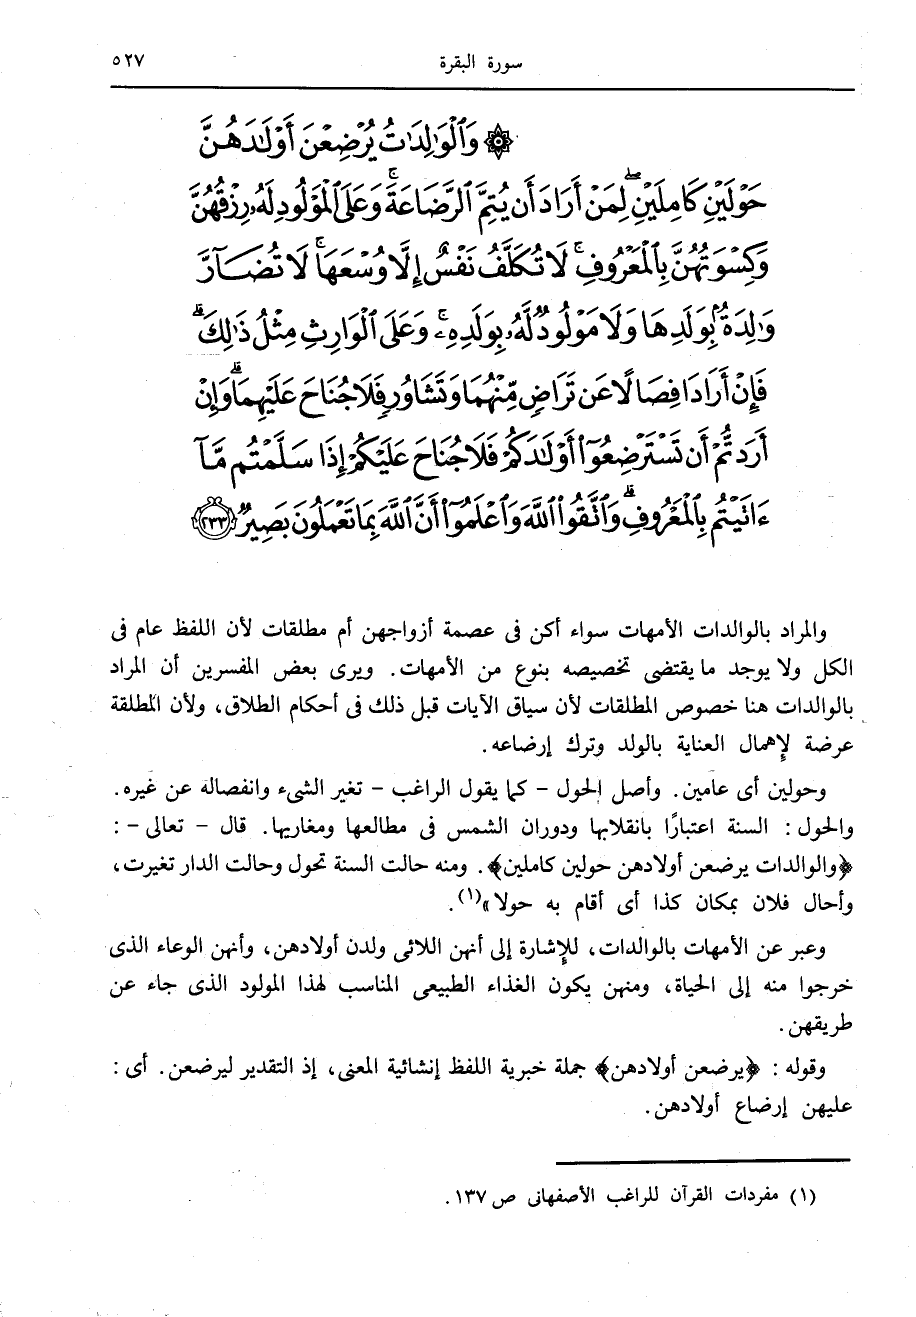 سورة البقرة ٥٢٧
۞ وَٱلْوَٰلِدَٰتُ يُرْضِعْنَ أَوْلَٰدَهُنَّ
حَوْلَيْنِ كَامِلَيْنِ ۖ لِمَنْ أَرَادَ أَن يُتِمَّ ٱلرَّضَاعَةَ ۚ وَعَلَى ٱلْمَوْلُودِ لَهُۥ رِزْقُهُنَّ
وَكِسْوَتُهُنَّ بِٱلْمَعْرُوفِ ۚ لَا تُكَلَّفُ نَفْسٌ إِلَّا وُسْعَهَا ۚ لَا تُضَآرَّ
وَٰلِدَةٌۢ بِوَلَدِهَا وَلَا مَوْلُودٌ لَّهُۥ بِوَلَدِهِۦ ۚ وَعَلَى ٱلْوَارِثِ مِثْلُ ذَٰلِكَ ۗ
فَإِنْ أَرَادَا فِصَالًا عَن تَرَاضٍ مِّنْهُمَا وَتَشَاوُرٍ فَلَا جُنَاحَ عَلَيْهِمَا ۗ وَإِنْ
أَرَدتُّمْ أَن تَسْتَرْضِعُوٓا۟ أَوْلَٰدَكُمْ فَلَا جُنَاحَ عَلَيْكُمْ إِذَا سَلَّمْتُم مَّآ
ءَاتَيْتُم بِٱلْمَعْرُوفِ ۗ وَٱتَّقُوا۟ ٱللَّهَ وَٱعْلَمُوٓا۟ أَنَّ ٱللَّهَ بِمَا تَعْمَلُونَ بَصِيرٌ ﴿٢٣٣﴾
والمراد بالوالدات الأمهات سواء أكن فى عصمة أزواجهن أم مطلقات لأن اللفظ عام فى
الكل ولا يوجد ما يقتضى تخصيصه بنوع من الأمهات. ويرى بعض المفسرين أن المراد
بالوالدات هنا خصوص المطلقات لأن سياق الآيات قبل ذلك فى أحكام الطلاق، ولأن المطلقة
عرضة لإهمال العناية بالولد وترك إرضاعه.
وحولين أى عامين. وأصل الحول - كما يقول الراغب - تغير الشىء وانفصاله عن غيره.
والحول : السنة اعتبارًا بانقلابها ودوران الشمس فى مطالعها ومغاربها. قال - تعالى - :
﴿والوالدات يرضعن أولادهن حولين كاملين﴾. ومنه حالت السنة تحول وحالت الدار تغيرت،
وأحال فلان بمكان كذا أى أقام به حولا»(١).
وعبر عن الأمهات بالوالدات، للإشارة إلى أنهن اللائى ولدن أولادهن، وأنهن الوعاء الذى
خرجوا منه إلى الحياة، ومنهن يكون الغذاء الطبيعى المناسب لهذا المولود الذى جاء عن
طريقهن.
وقوله : ﴿يرضعن أولادهن﴾ جملة خبرية اللفظ إنشائية المعنى، إذ التقدير ليرضعن. أى :
عليهن إرضاع أولادهن.
(١) مفردات القرآن للراغب الأصفهانى ص ١٣٧.